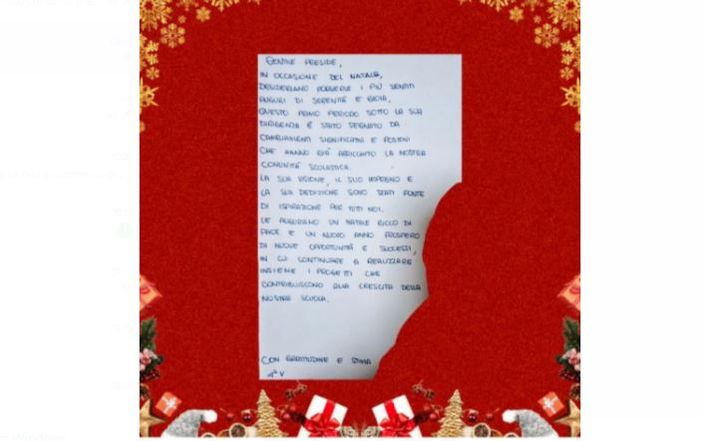 GENTILE PRESIDE,
IN OCCASIONE DEL NATALE,
DESIDERIAMO PORGERLE I PIÙ SENTITI
AUGURI DI SERENITÀ E GIOIA,
QUESTO PRIMO PERIODO SOTTO LA SUA
DIRIGENZA È STATO SEGNATO DA
CAMBIAMENTI SIGNIFICATIVI E POSITIVI
CHE HANNO GIÀ ARRICCHITO LA NOSTRA
COMUNITÀ SCOLASTICA.
LA SUA VISIONE, IL SUO IMPEGNO E
LA SUA DEDIZIONE SONO STATI FONTE
DI ISPIRAZIONE PER TUTTI NOI.
LE AUGURIAMO UN NATALE RICCO DI
PACE E UN NUOVO ANNO PROSPERO
DI NUOVE OPPORTUNITÀ E SUCCESSI,
IN CUI CONTINUARE A REALIZZARE
INSIEME I PROGETTI CHE
CONTRIBUISCONO ALLA CRESCITA DELLA
NOSTRA SCUOLA.
CON GRATITUDINE E STIMA
4ª V